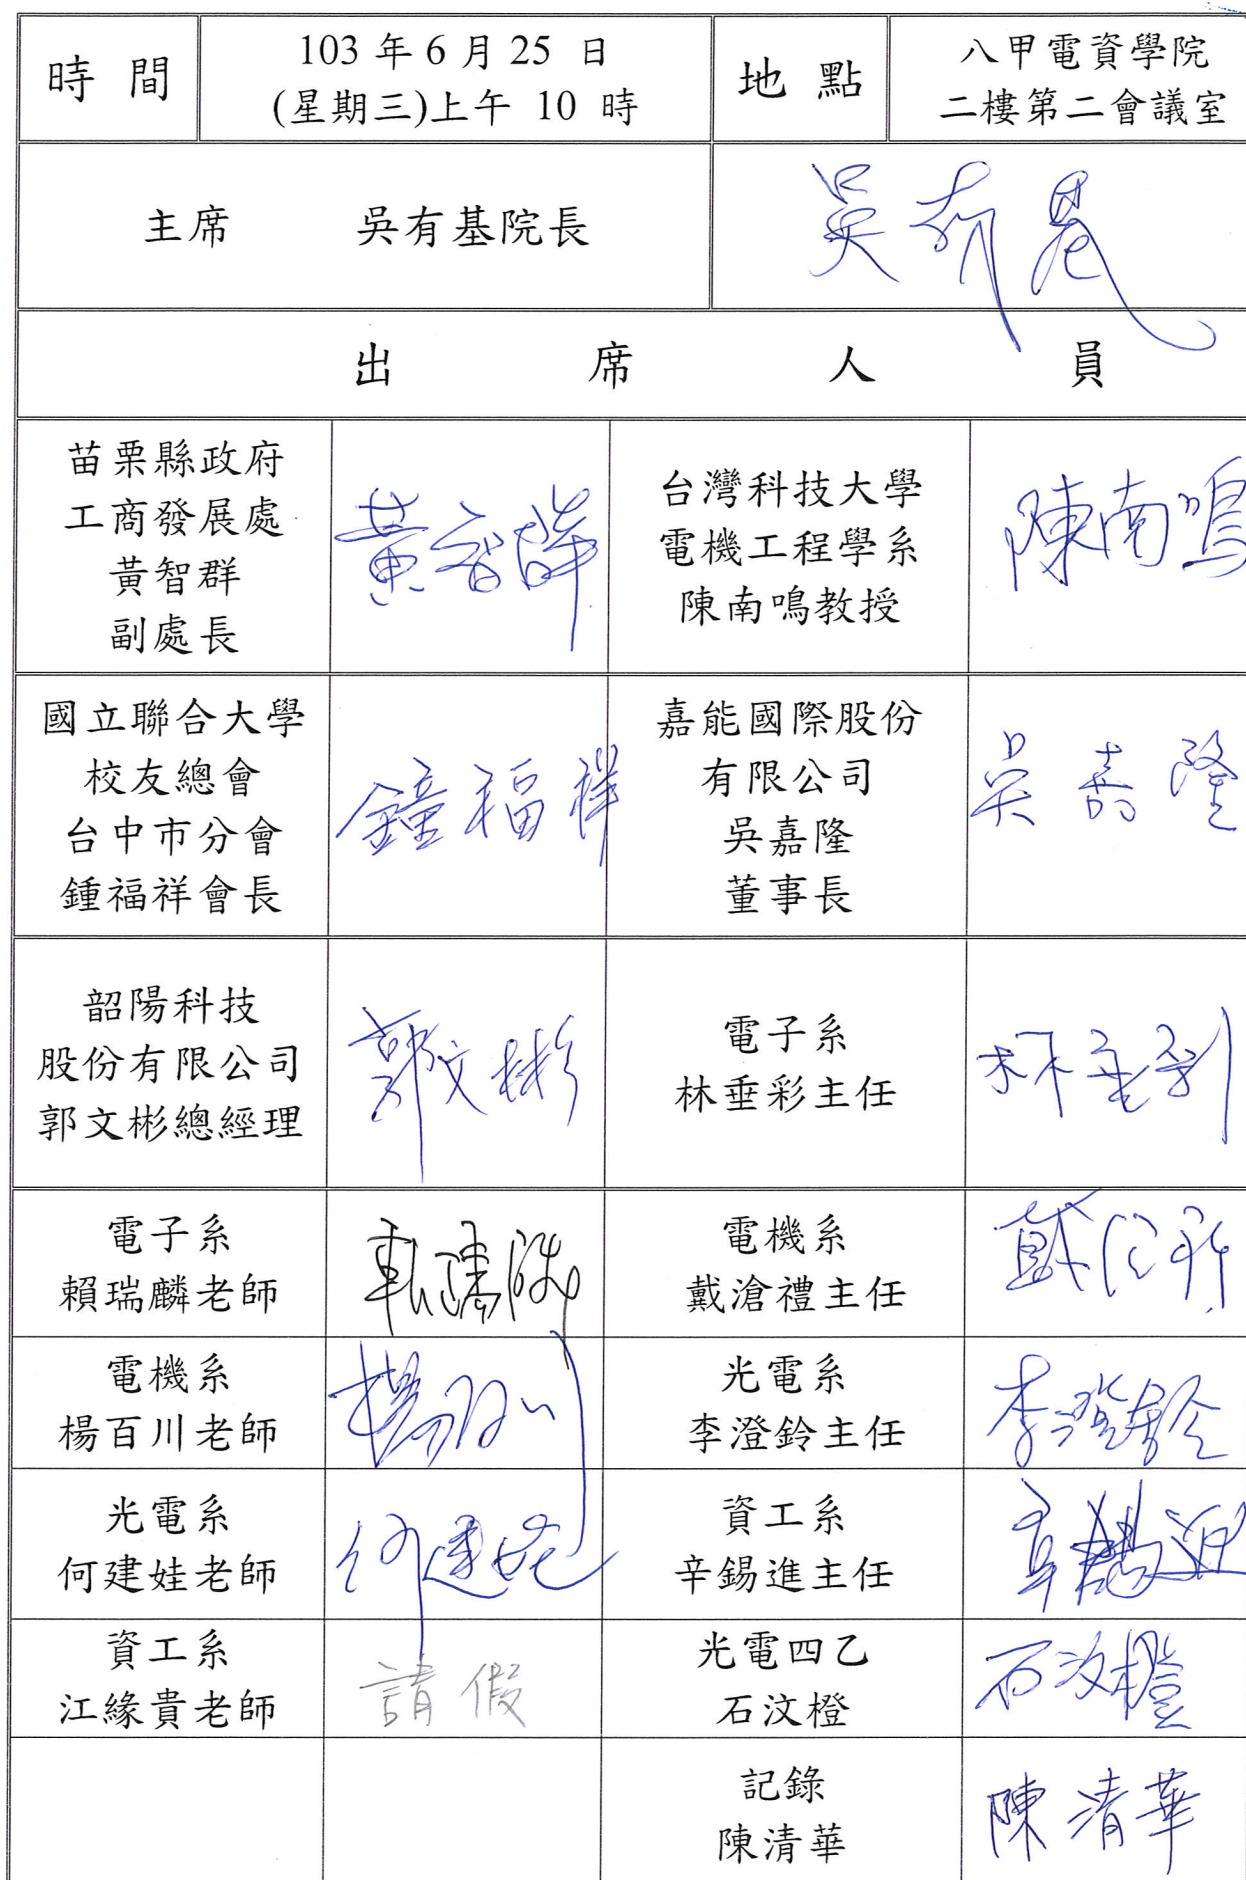 時 間
103 年 6 月 25 日
(星期三)上午 10 時
地 點
八甲電資學院
二樓第二會議室
主席 吳有基院長
吳有基
出 席 人 員
苗栗縣政府
工商發展處
黃智群
副處長
黃智群
台灣科技大學
電機工程學系
陳南鳴教授
陳南鳴
國立聯合大學
校友總會
台中市分會
鍾福祥會長
鐘福祥
嘉能國際股份
有限公司
吳嘉隆
董事長
吳嘉隆
韶陽科技
股份有限公司
郭文彬總經理
郭文彬
電子系
林垂彩主任
林垂彩
電子系
賴瑞麟老師
電機系
戴滄禮主任
電機系
楊百川老師
楊百川
光電系
李澄鈴主任
李澄鈴
光電系
何建娃老師
何建娃
資工系
辛錫進主任
辛錫進
資工系
江緣貴老師
請假
光電四乙
石汶橙
石汶橙
記錄
陳清華
陳清華